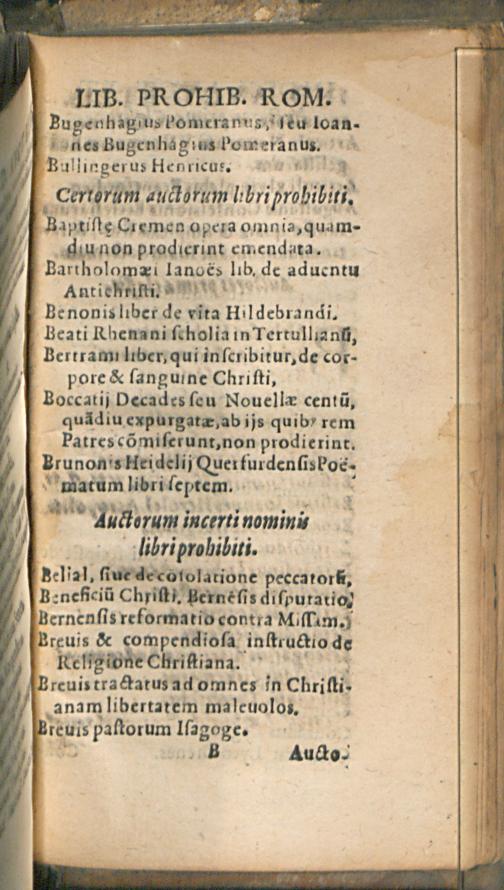 LIB. PROHIB. ROM.
Bugenhagius Pomeranus, seu Ioan-
nes Bugenhagius Pomeranus.
Bullingerus Henricus.
Certorum auctorum libri prohibiti.
Baptistę Cremen opera omnia, quam-
diu non prodierint emendata.
Bartholomæi Ianoës lib. de aduentu
Antichristi.
Benonis liber de vita Hildebrandi.
Beati Rhenani scholia in Tertullianū,
Bertrami liber, qui inscribitur, de cor-
pore & sanguine Christi,
Boccatij Decades seu Nouellæ centū,
quādiu expurgatæ, ab ijs quibꝰ rem
Patres cōmiserunt, non prodierint.
Brunonis Heidelij Querfurdensis Poë-
matum libri septem.
Auctorum incerti nominis
libri prohibiti.
Belial, siue de cōsolatione peccatorū,
Beneficiū Christi. Bernēsis disputatio,
Bernensis reformatio contra Missam.
Breuis & compendiosa instructio de
Religione Christiana.
Breuis tractatus ad omnes in Christi-
anam libertatem maleuolos.
Breuis pastorum Isagoge.
B Aucto-